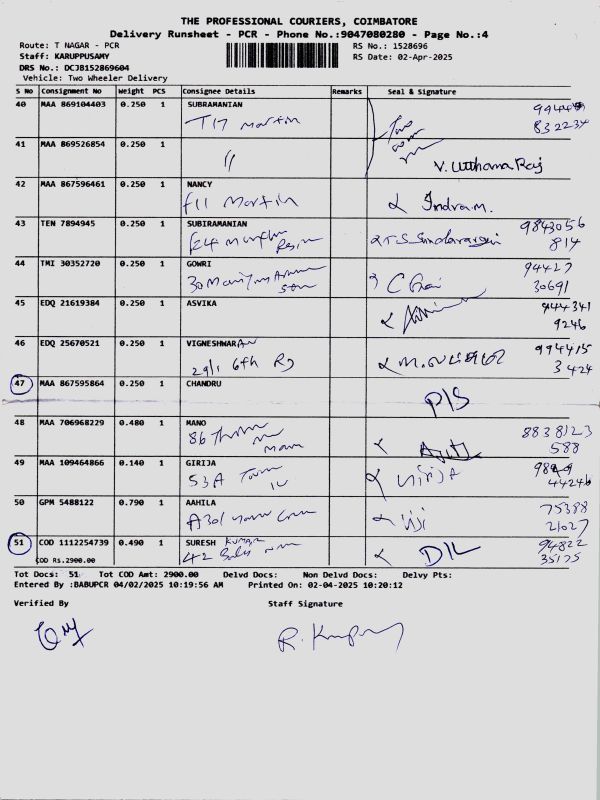 THE PROFESSIONAL COURIERS, COIMBATORE
Delivery Runsheet - PCR - Phone No.:9047080280 - Page No.:4
Route: T NAGAR - PCR RS No.: 1528696
Staff: KARUPPUSAMY RS Date: 02-Apr-2025
DRS No.: DCJB152869604
Vehicle: Two Wheeler Delivery
S No Consignment No Weight PCS Consignee Details Remarks Seal & Signature
40 MAA 869104403 0.250 1 SUBRAMANIAN
T17 Martin 832234
41 MAA 869526854 0.250 1
〃 V. Utthama Raj
42 MAA 867596461 0.250 1 NANCY
F11 Martin Indra.M.
43 TEN 7894945 0.250 1 SUBIRAMANIAN 9843056
F24 814
44 TMI 30352720 0.250 1 GOWRI 94427
30 30691
45 EDQ 21619384 0.250 1 ASVIKA 944341
9246
46 EDQ 25670521 0.250 1 VIGNESHWARAN 994415
29/1 6th Rd 3424
47 MAA 867595864 0.250 1 CHANDRU
P/S
48 MAA 706968229 0.480 1 MANO 8838123
86 588
49 MAA 109464866 0.140 1 GIRIJA
53A Girija 44246
50 GPM 5488122 0.790 1 AAHILA 75388
A301 Viji 21027
51 COD 1112254739 0.490 1 SURESH KUMAR 94822
COD RS.2900.00 42 D/L 35175
Tot Docs: 51 Tot COD Amt: 2900.00 Delvd Docs: Non Delvd Docs: Delvy Pts:
Entered By :BABUPCR 04/02/2025 10:19:56 AM Printed On: 02-04-2025 10:20:12
Verified By Staff Signature